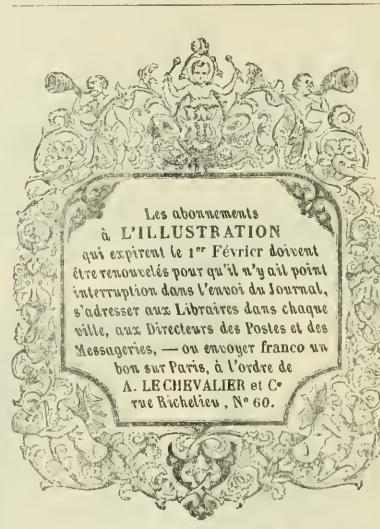 Les abonnements
à L'ILLUSTRATION
qui expirent le 1er Février doivent
être renouvelés pour qu'il n'y ait point
interruption dans l'envoi du Journal,
s'adresser aux Libraires dans chaque
ville, aux Directeurs des Postes et des
Messageries, — ou envoyer franco un
bon sur Paris, à l'ordre de
A. LE CHEVALIER et Ce
rue Richelieu, No 60.